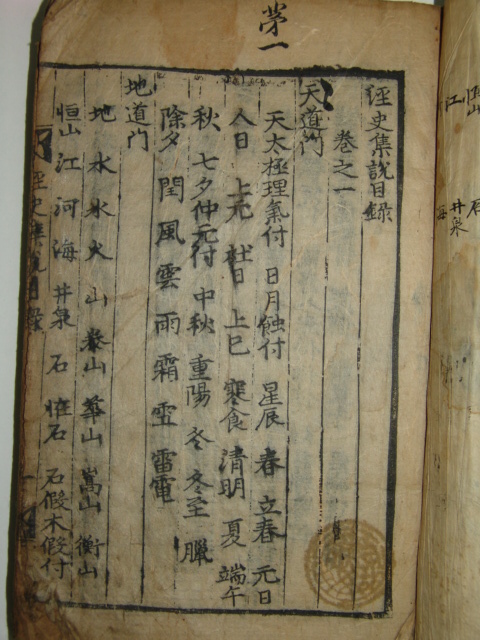 第一
經史集說目錄
卷之一
天道門
天太極理氣付 日月蝕付 星辰 春 立春 元日
人日 上元 社日 上巳 寒食 清明 夏 端午
秋 七夕 仲元付 中秋 重陽 冬 冬至 臘
除夕 閏 風 雲 雨 霜 雪 雷電
地道門
地 水 氷 火 山 泰山 華山 嵩山 衡山
恒山 江 河 海 井泉 石 恠石 石假木假付
經史集說目錄
一
江
井泉
石